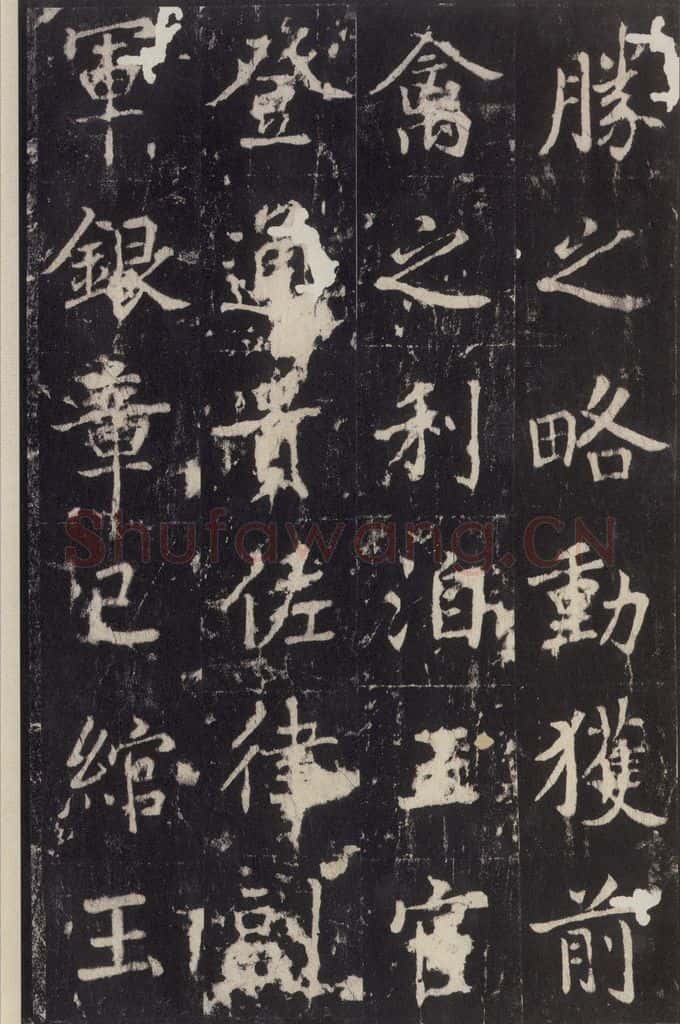 勝之略動獲前
禽之利洎五官
登通貴佐律副
軍銀章已綰王
Shufawang.CN